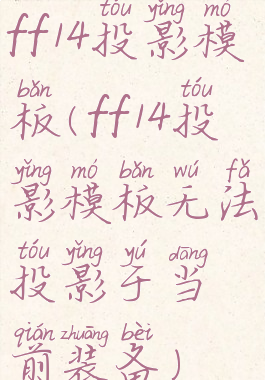 tóu yǐng mó
ff14投影模
bǎn tóu
板(ff14投
yǐng mó bǎn wú fǎ
影模板无法
tóu yǐng yú dāng
投影于当
qián zhuāng bèi
前装备)